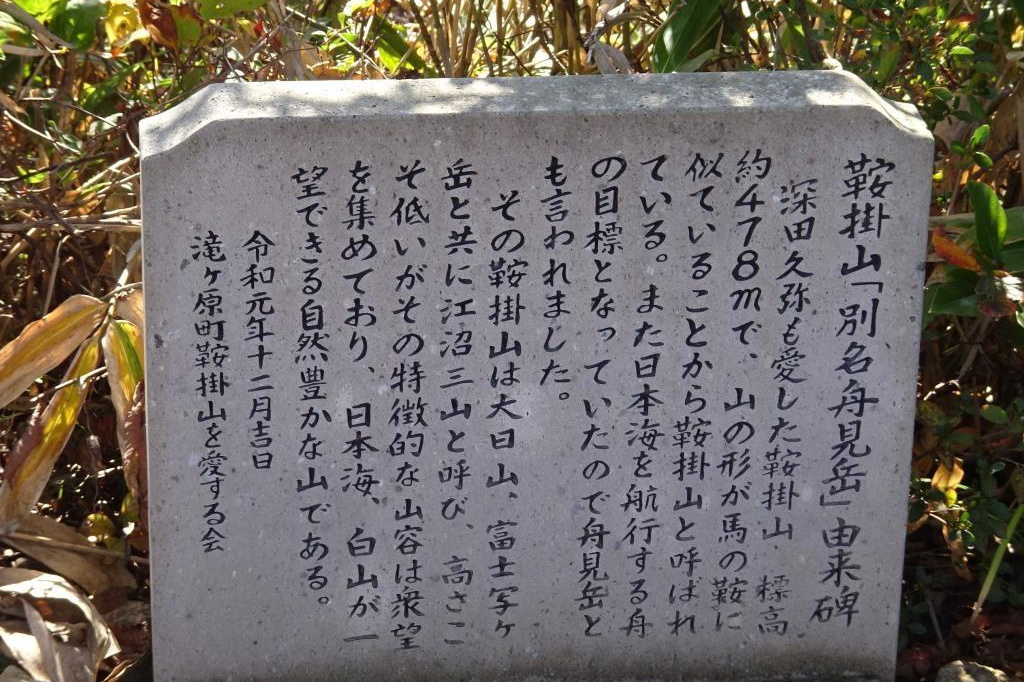 鞍掛山「別名舟見岳」由来碑
深田久弥も愛した鞍掛山、標高
約478mで、山の形が馬の鞍に
似ていることから鞍掛山と呼ばれ
ている。また日本海を航行する舟
の目標となっていたので舟見岳と
も言われました。
その鞍掛山は大日山、富士写ヶ
岳と共に江沼三山と呼び、高さこ
そ低いがその特徴的な山容は衆望
を集めており、日本海、白山が一
望できる自然豊かな山である。
令和元年十二月吉日
滝ヶ原町鞍掛山を愛する会